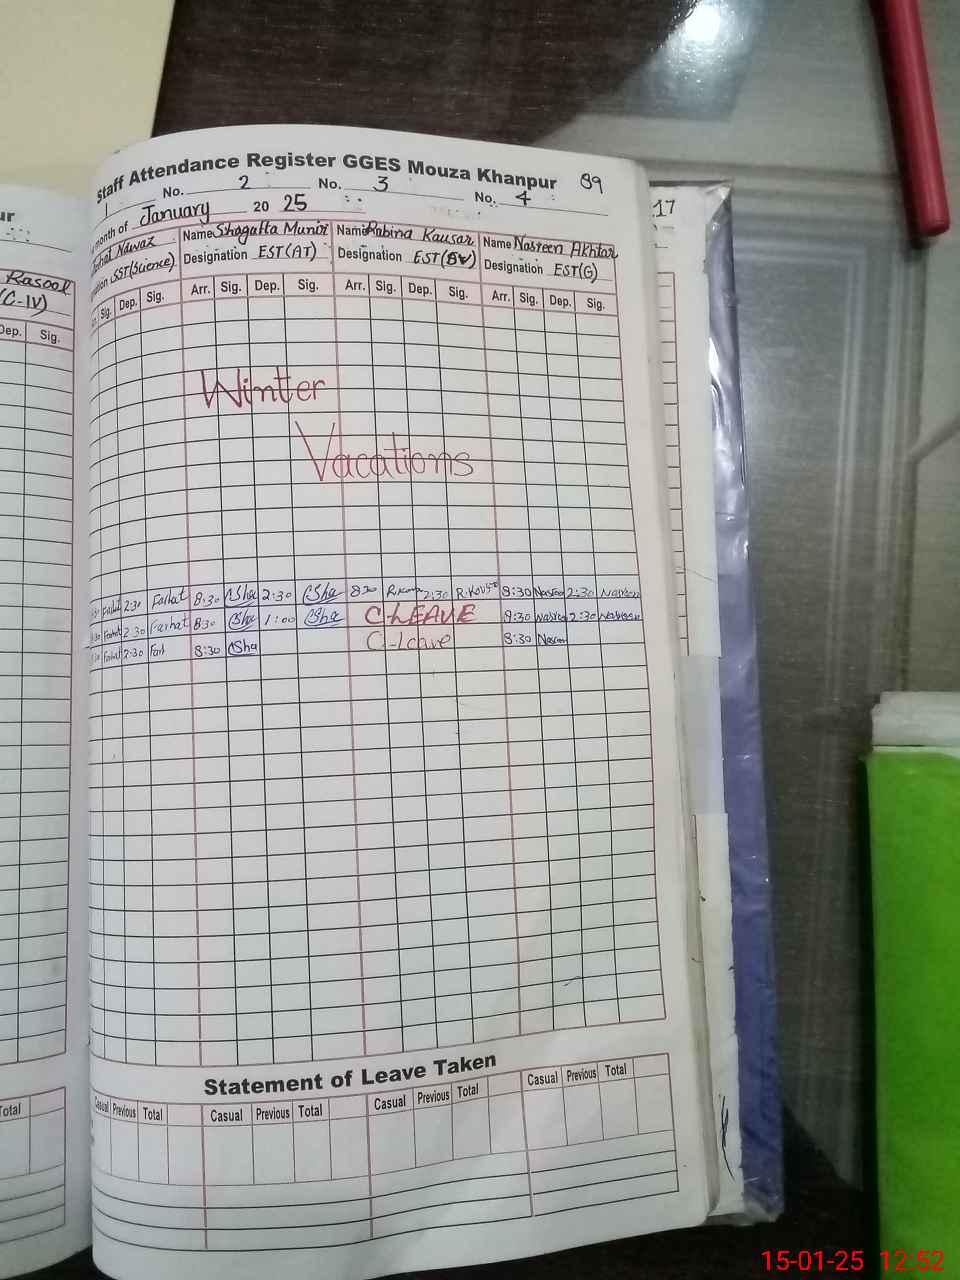 Staff Attendance Register GGES Mouza Khanpur 89
1 No. 2 No. 3 No. 4
month of January 20 25
Nawaz Name Shagufta Munir Name Rabina Kausar Name Nasreen Akhtar
SST(Science) Designation EST(AT) Designation EST Designation EST(G)
Sig. Dep. Sig. Arr. Sig. Dep. Sig. Arr. Sig. Dep. Sig. Arr. Sig. Dep. Sig.
Winter
Vacations
Farhat 2:30 Farhat 8:30 Sha 2:30 Sha 8:30 R.Kou 2:30 R.Kous 8:30 Nasreen 2:30 Nasreen
Farhat 2:30 Farhat 8:30 Sha 1:00 Sha C-LEAVE 8:30 Nasreen 2:30 Nasreen
Farhat 2:30 Farh 8:30 Sha C-leave 8:30 Nasreen
Statement of Leave Taken
Casual Previous Total Casual Previous Total Casual Previous Total Casual Previous Total
ur
Rasool
(C-IV)
Dep. Sig.
Total
17
15-01-25 12:52